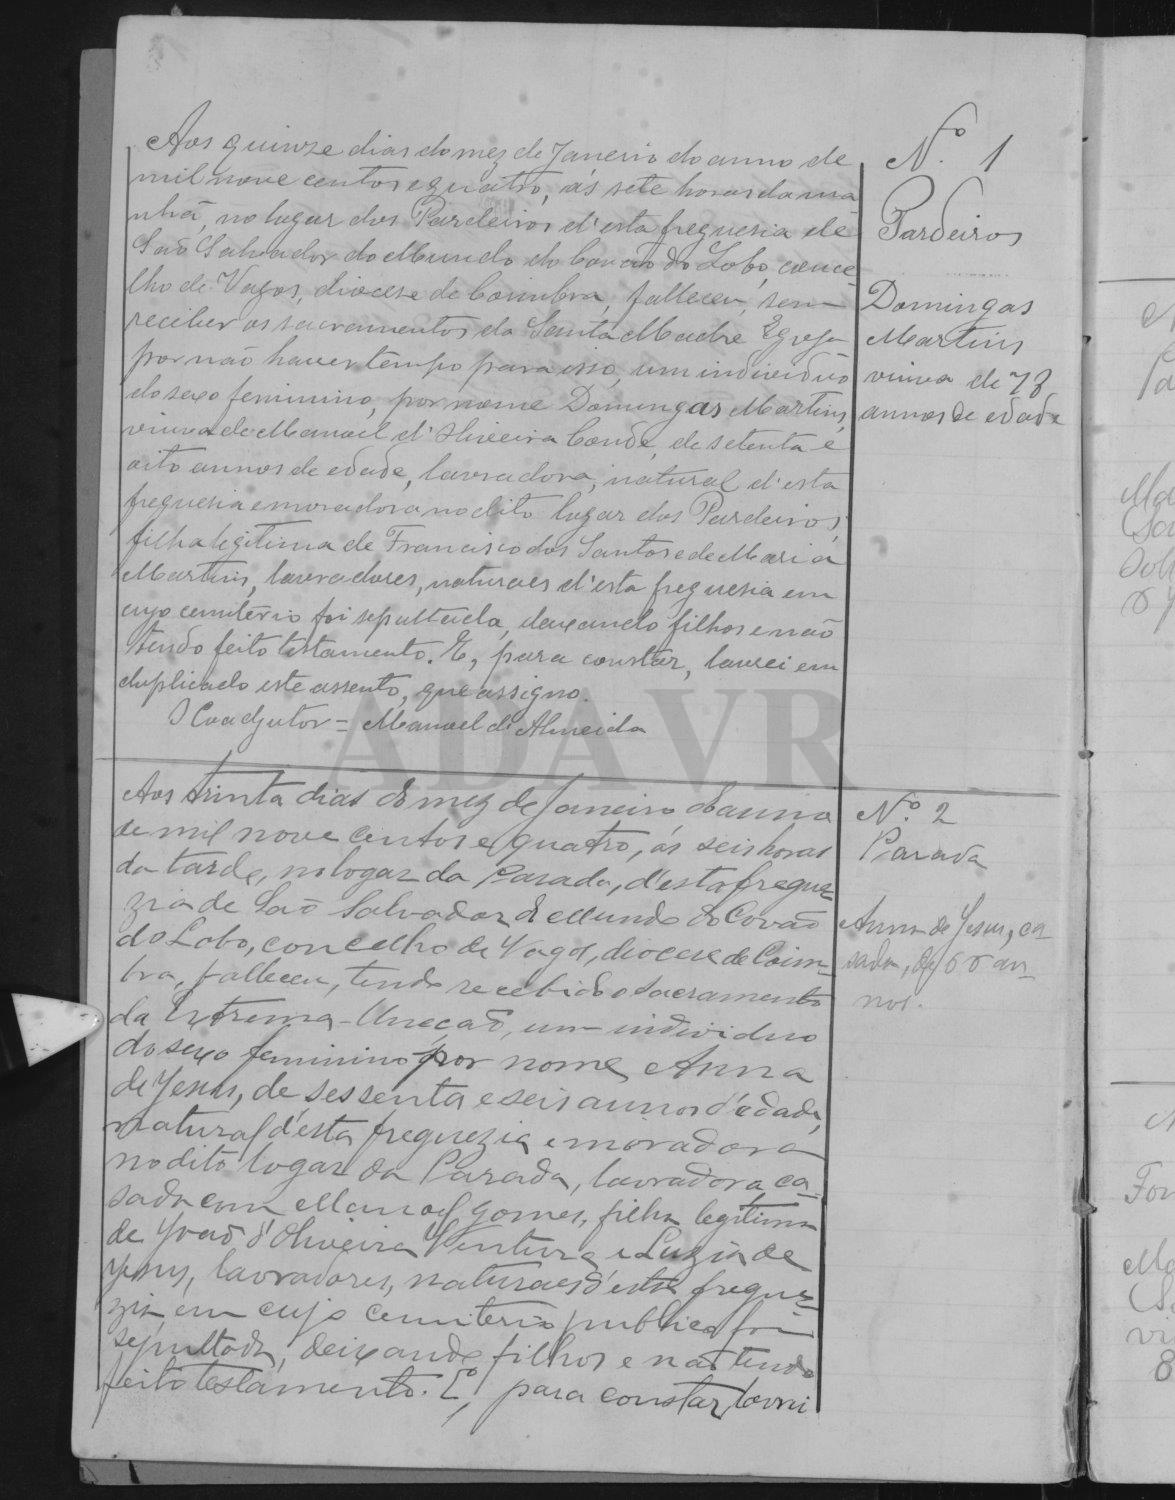 Aos quinze dias do mez de Janeiro do anno de
mil nove centos e quatro, ás sete horas da ma-
nhã, no lugar dos Pardeiros d'esta freguesia de
São Salvador do Mundo do Covão do Lobo, conce-
lho de Vagos, diocese de Coimbra, falleceu, sem
receber os sacramentos da Santa Madre Egreja
por não haver tempo para isso, um individuo
do sexo feminino, por nome Domingas Martins,
viuva de Manoel d'Oliveira Conde, de setenta e
oito annos de edade, lavradora, natural d'esta
freguesia e moradora no dito lugar dos Pardeiros,
filha legitima de Francisco dos Santos e de Maria
Martins, lavradores, naturaes d'esta freguesia em
cujo cemitério foi sepultada, deixando filhos e não
tendo feito testamento. E, para constar, lavrei em
duplicado este assento, que assigno.
O Coadjutor = Manoel d'Almeida
Nº 1
Pardeiros
Domingas
Martins
viuva de 78
annos de edade
Aos trinta dias do mez de Janeiro do anno
de mil nove centos e quatro, ás seis horas
da tarde, no logar da Parada, d'esta fregue-
zia de São Salvador do Mundo do Covão
do Lobo, concelho de Vagos, diocese de Coim-
bra, falleceu, tendo recebido o sacramento
da Extrema-Uncção, um individuo
do sexo feminino por nome Anna
de Jesus, de sessenta e seis annos d'edade,
natural d'esta freguezia e moradora
no dito logar da Parada, lavradora, ca-
sada com Manoel Gomes, filha legitima
de João d'Oliveira Ventura e Luzia de
Jesus, lavradores, naturaes d'esta fregue-
zia, em cujo cemiterio publico foi
sepultada, deixando filhos e não tendo
feito testamento. E, para constar, lavrei
Nº 2
Parada
Anna de Jesus, ca-
sada, de 66 an-
nos.
ADAVR